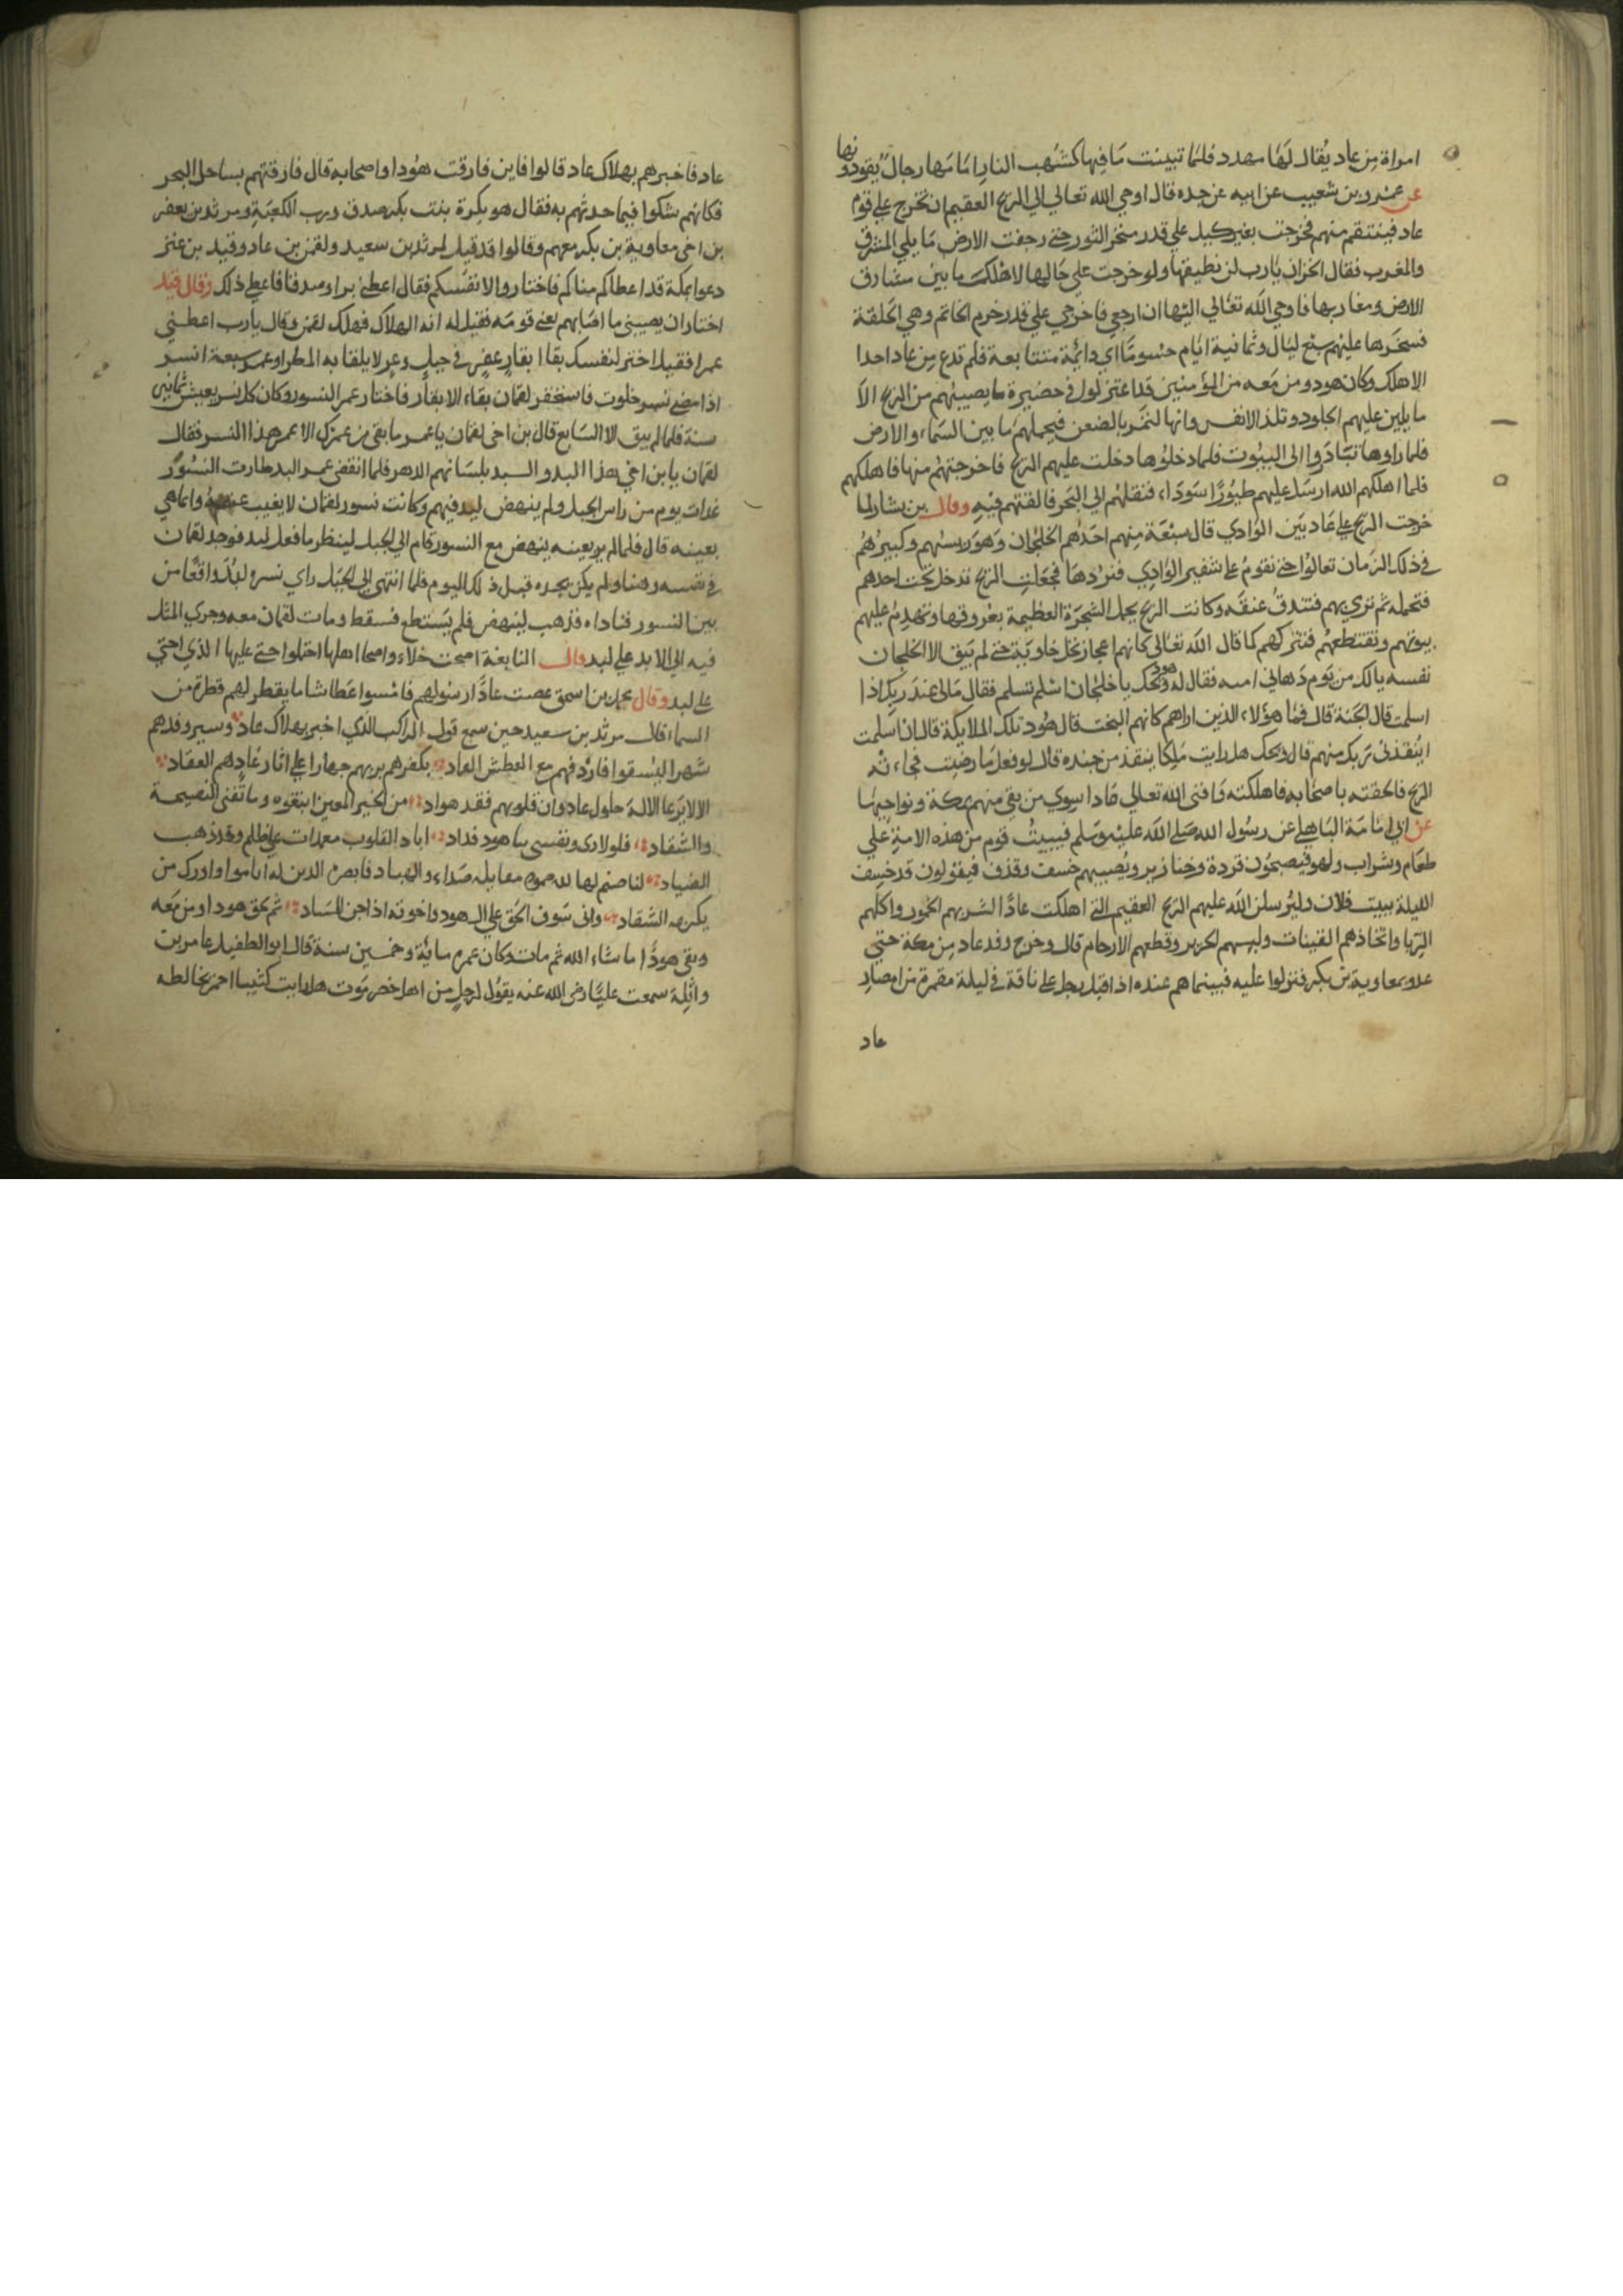 امراة من عاد يُقال لهَا مهدد فلمّا تبيّنت مَا فيها كشهب النار امَامها رجال يقودونها
عن عمرو بن شعيب عن ابيه عن جده قال اوحي الله تعالي الي الريح العقيم ان تخرج علي قوم
عاد فينتقم منهم فخرجت بغير كيل علي قدر منخر الثور حتي رجفت الارض مَا يلي المشرق
والمغرب فقال الخزان يَا رب لن نطيقها ولو خرجت علي حَالها لاهلكت ما بين مشَارق
الارض ومغاربها فاوحي الله تعَالي اليها ان ارجعي فاخرجي علي قدر خرم الخاتم وهي الحَلقة
فسخرها عليهم سبع ليَال وثمانية ايَام حسُومًا اي دائمة متتابعة فلم تدع من عاد احدا
الا هلك وكان هود ومن معه من المؤمنين قد اعتزلوا في حضيرة ما يصيبهم من الريح الا
ما يلين عليهم الجلود وتلذ الانفس وانها لتمر بالضعن فيحملهم ما بين السمَاء والارض
فلما راوها تبَادَروا الي البيُوت فلما دخلوُها دخلت عليهم الريح فاخرجتهُم منها فاهلكتهم
فلما اهلكهم الله ارسَل عليهم طيُورًا سَودَاء فنقلتهم الي البَحر فالقتهم فيْه وقال بن يشار لما
خرجت الريح علي عَاد بَين الوَادي قال سبْعَة مِنهم احَدُهم الخلجَان وَهوَ ريسُهم وكبيرُهُم
في ذلك الزمان تعالوُا حتي نقومُ علي شفير الوَادِي فنردهَا فجعَلت الريح تدخل تحت احدهم
فتحمله ثم ترمي بهم فتندق عنقَه وكانت الريح يحمل الشجرَة العظيمة بعُروقها وتهدِم عليهم
بيوتهم وتقتطعهُم فتتركهم كما قال الله تعَالي كانهم اعجاز نخل خاويَة حتي لم يَبق الا الخلجان
نفسه يالك من يَوم دَهاني امسه فقال له هود ويحك يا خلجَان اسْلم تسلم فقال مَالي عندَ ربك اذا
اسلمت قال الجَنة قال فمَا هؤلاء الذين اراهم كانهم البخت قال هُود تلك الملايكة قال ان اسَلمت
اينقذني رَبك منهم قال ويحك هل رايت مَلِكا ينقذ من جنده قال لو فعل مَا رضيت فجَاءته
الريح فالحقته باصحَابه فاهلكته وَافني الله تعالي عَادا سِوي من بقي منهم بمكة ونواحِيهَا
عن ابي امَامَة البَاهلي عن رسُول الله صَلي الله عليْه وَسلم فيبيتُ قوم من هذه الامة علي
طعَام وشراب ولهو فيصبحُون قردة وخنازير ويُصيبهم خسف وقذف فيقولون قد خسِف
الليلة ببيت فلان وليُرسلن الله عليهم الريح العقيم التي اهلكت عَادًا لشربهم الخمور واكلهم
الرّبا واتخَاذهم القينات ولبسهم الحَرير وقطعهم الارحام قال وخرج وفد عاد مِن مكة حتي
علو بمعاوية بن بكر فنزلوا عليه فبينما هم عنده اذ اقبل رجل علي ناقة في ليلة مقمرة من امصار
عاد
عاد فاخبرهم بهلاك عاد قالوا فاين فارقت هوُدا واصحابه قال فارقتهم بساحل البحر
فكانهم شكوا فيما حدثهم به فقال هو بكرة بنت بكر صدق ورب الكعبَة ومرثد بن يعفر
بن اخي معاوية بن بكر معهم وقالوا قد قيل لمرثد بن سعيد ولقمن بن عاد وقيل بن عنز
دعوا بمكة قد اعطاكم مناكم فاختاروا لانفسكم فقال اعطني برا وصدقا فاعطي ذلك وقال قيل
اختار ان يصيبني ما اصَابهم يعني قومَه فقيل له انه الهلاك فهلك لقمن وقال يا رب اعطني
عمرا فقيل اختر لنفسك بقاء ابقار عفر في جبل وعر لا يلقا به المطر او عمر سبعة انسر
اذا مضي نسر خلوت فاستغفر لقمان بقاء الابقار فاختار عمر النسور وكان كل نسر يعيش ثمانين
سنة فلما لم يبق الا السَابع قال بن اخي لقمَان يا عمر ما بقي من عمرك الا عمر هذا النسر فقال
لقمان يا بن اخي هذا لبد واللبد بلسَانهم الدهر فلما انقضي عمر البد طارت النسُورُ
غدات يوم من راس الجبل ولم ينهض لبد فيهم وكانت نسور لقمان لا يغيب عنه وانما هي
بعينه قال فلما لم ير بعينه ينهض مع النسور قام الي الجبل لينظر ما فعل لبد فوجد لقمان
في نفسه وهنا ولم يكن يجده قبل ذلك اليوم فلما انتهي الي الجَبَل راي نسره لبُدً واقعًا من
بين النسور فناداه فذهب لينهض فلم يَستطع فسقط ومات لقمَان معه وجري المثل
فيه الي الابد علي لبد وقال النابغة اصبحت خلاء واصحا اهلها احتملوا حتي عليها الذي احتي
علي لبد وقال محمد بن اسحق عصت عادًا رسُولهم فامْسوا عطَاشا ما يقطر لهم قطرة من
السماء قال مرثد بن سعيد حين سمع قول الراكب الذي اخبر بهلاك عاد وسير وفدهم
شهرا ليُسقوا فاردفهم مع العطش العاد بكفرهم بربهم جهارا علي اثار عَادِهم العقَاد
الا لا يرَعا الالهَ حلول عاد وان قلوبهم فقد هواد من الخير المعين ابتغوه وما تغني النصيحة
والشقاد فلولادي ونفسي بنا هود فداد اباد القلوب معمدات علي ظلم وقد ذهب
الضياد لنا صنم لها له صمود مقابله صَداء والهباد فابصره الدين له انابوا وادرك من
يكذبه الشقاد واني سَوف الحَق علي ال هود واخوته اذا جن المَساد ثم لحق هودا ومن مَعَه
وبقي هودُ ما شاء الله ثم مات وكان عمره مايَة وخمسين سنة قال ابو الطفيل عامر بن
واثِلة سمعت عليَّا رضي الله عنه يقوُل لرجلٍ من اهل حضرمَوت هل رايت كثيبا احمر تخالطه